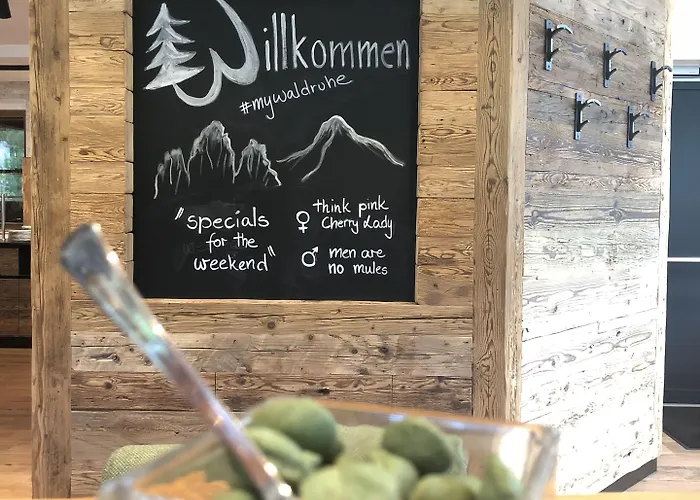 Willkommen
#mywaldruhe
"specials
for the
weekend"
♀ think pink
Cherry Lady
♂ men are
no mules